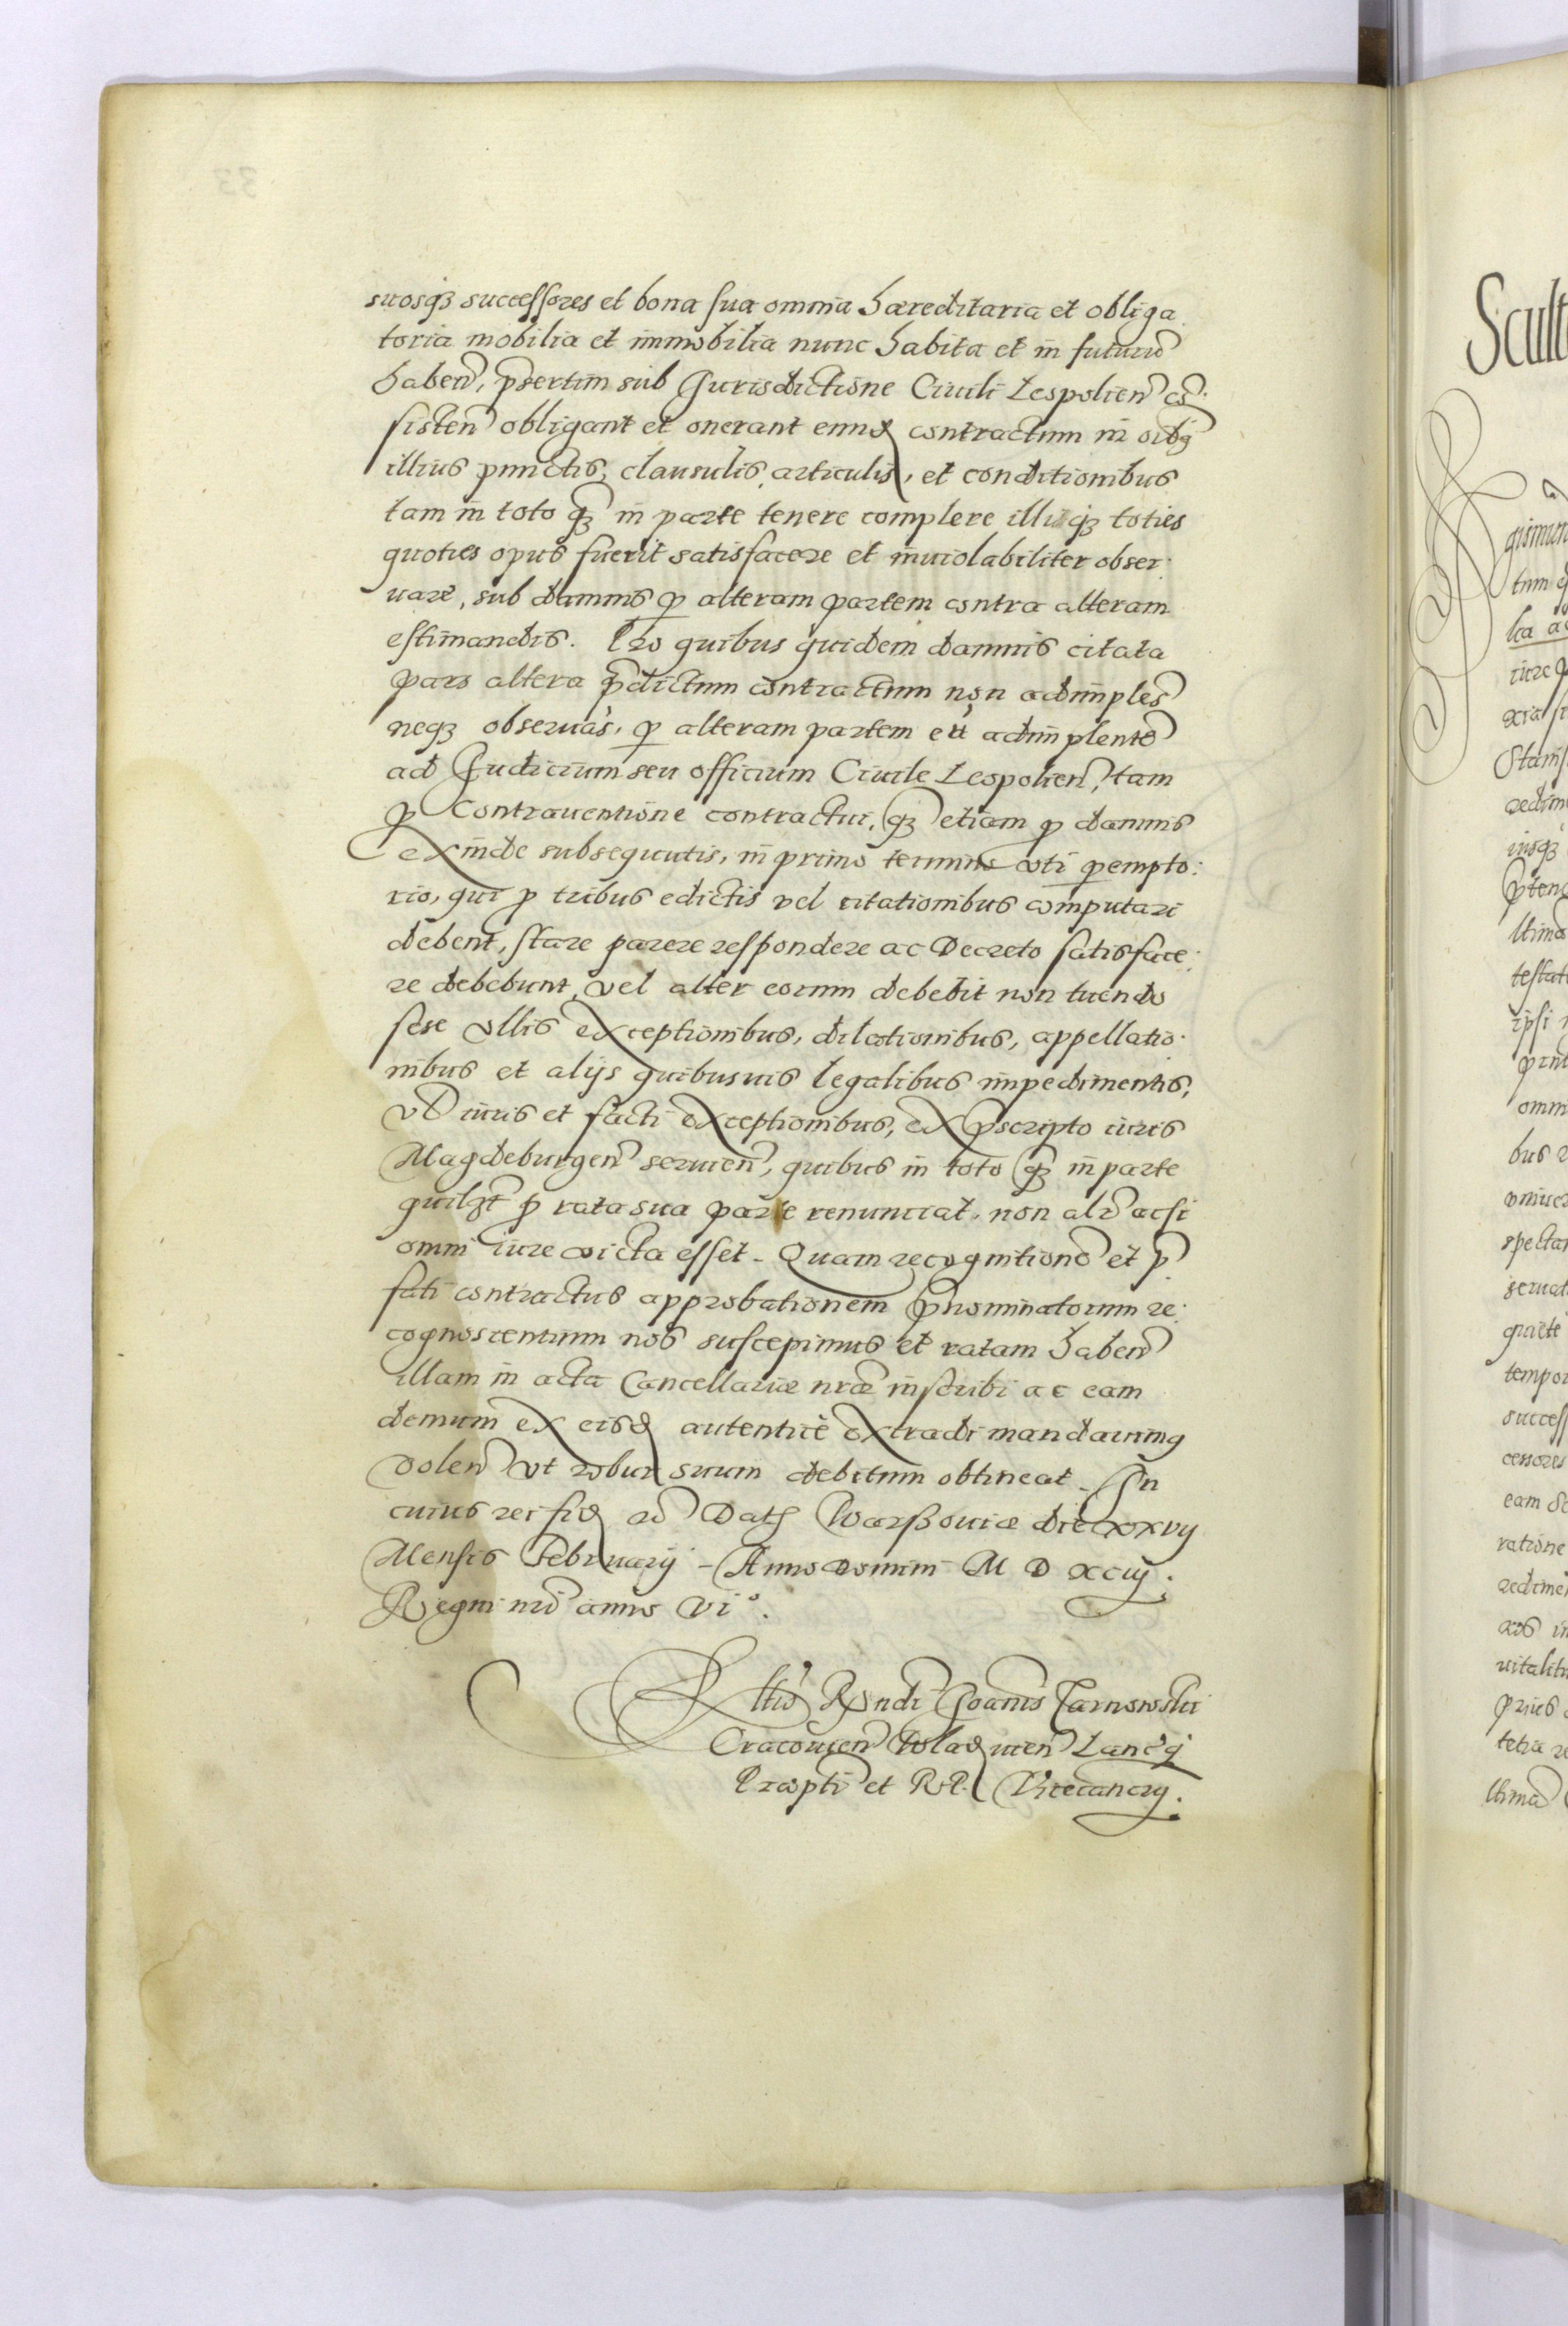 suosq3 successores et bona sua omnia haereditaria et obliga
toria mobilia et immobilia nunc habita et in futurū
haben̄, p̄sertim sub Jurisdictione Ciuili Leopolien̄ cō:
sisten̄ obligant et onerant eund contractum in oībq
illius punctis, clausulis, articulis, et conditionibus
tam in toto q3 in parte tenere complere illiq3 toties
quoties opus fuerit satisfacere et inuiolabiliter obser:
uare, sub damnis ꝑ alteram partem contra alteram
estimandis. Pro quibus quidem damnis citata
pars altera p̄dictum contractum non adimplēs
neq3 obseruās, ꝑ alteram partem eū adimplentē
ad Judicium seu officium Ciuile Leopolien̄, tam
ꝓ Contrauentione contractui, q3 etiam ꝓ damnis
exinde subsequutis, in primo termino vti ꝑempto:
rio, qui ꝓ tribus edictis vel citationibus computari
debent, stare parere respondere ac Decreto satisface:
re debebunt, vel alter eorum debebit non tuendo
sese vllis exceptionibus, dilationibus, appellatio:
nibus et alijs quibusuis legalibus impedimentis,
vl̄ iuris et facti exceptionibus, ex p̄scripto iuris
Magdeburgen̄ seruien̄, quibus in toto q3 in parte
quil3t ꝓ rata sua parte renunciat, non alr̄ acsi
omni iure victa esset. Quam recognitionē et p̄
fati contractus approbationem p̄nominatorum re:
cognoscentium nos suscepimus et ratam haben̄
illam in acta Cancellariae nrāe inscribi ac eam
demum ex eisd autenticè extradi mandauimq
volen̄ vt robur suum debitum obtineat. In
cuius rei fid Dat Warszouiae die xxvij
Mensis Februarij. Anno Domini M D XCiij.
Regni nrī anno Vi°.
Rndi Joanis Tarnowski
Cracouien̄ Wlad uien̄ Lanciq
Praepti et R. P. Vicecancrij.
Scult